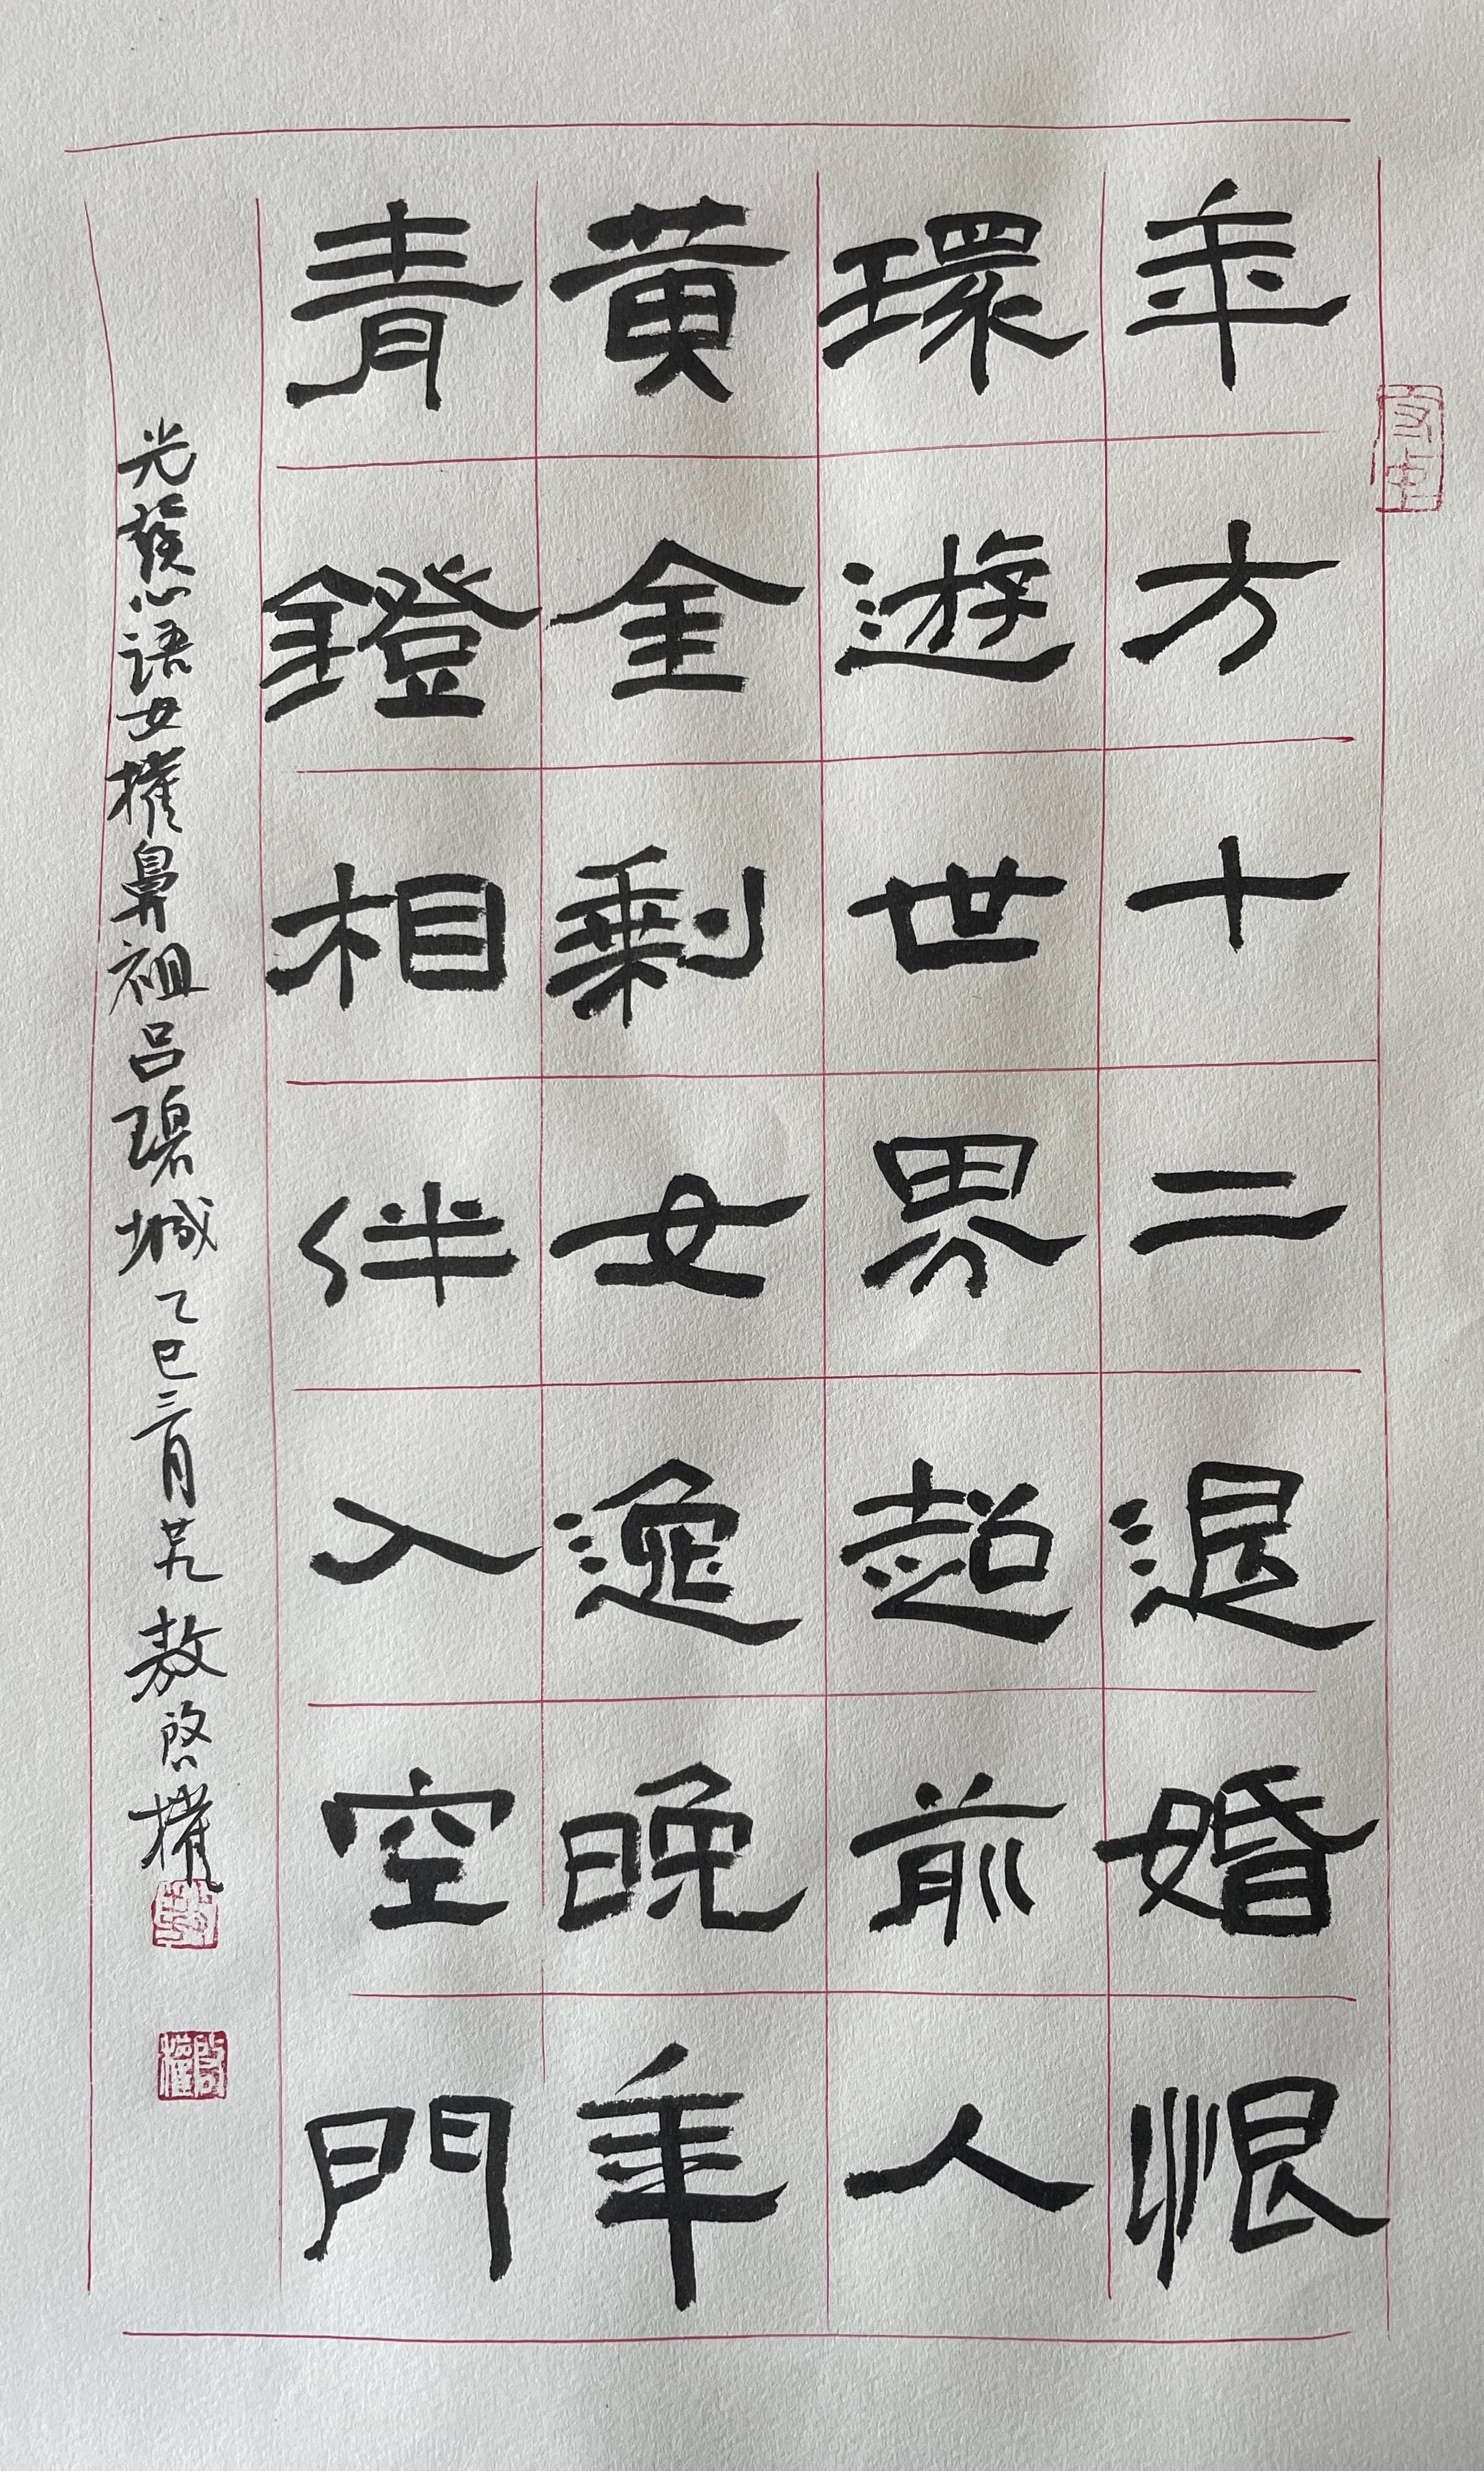 年方十二退婚恨
環遊世界超前人
黄金剩女逸晚年
青鐙相伴入空門
光議心語女權鼻祖呂碧城乙巳三月廿九敖啓權
啓權